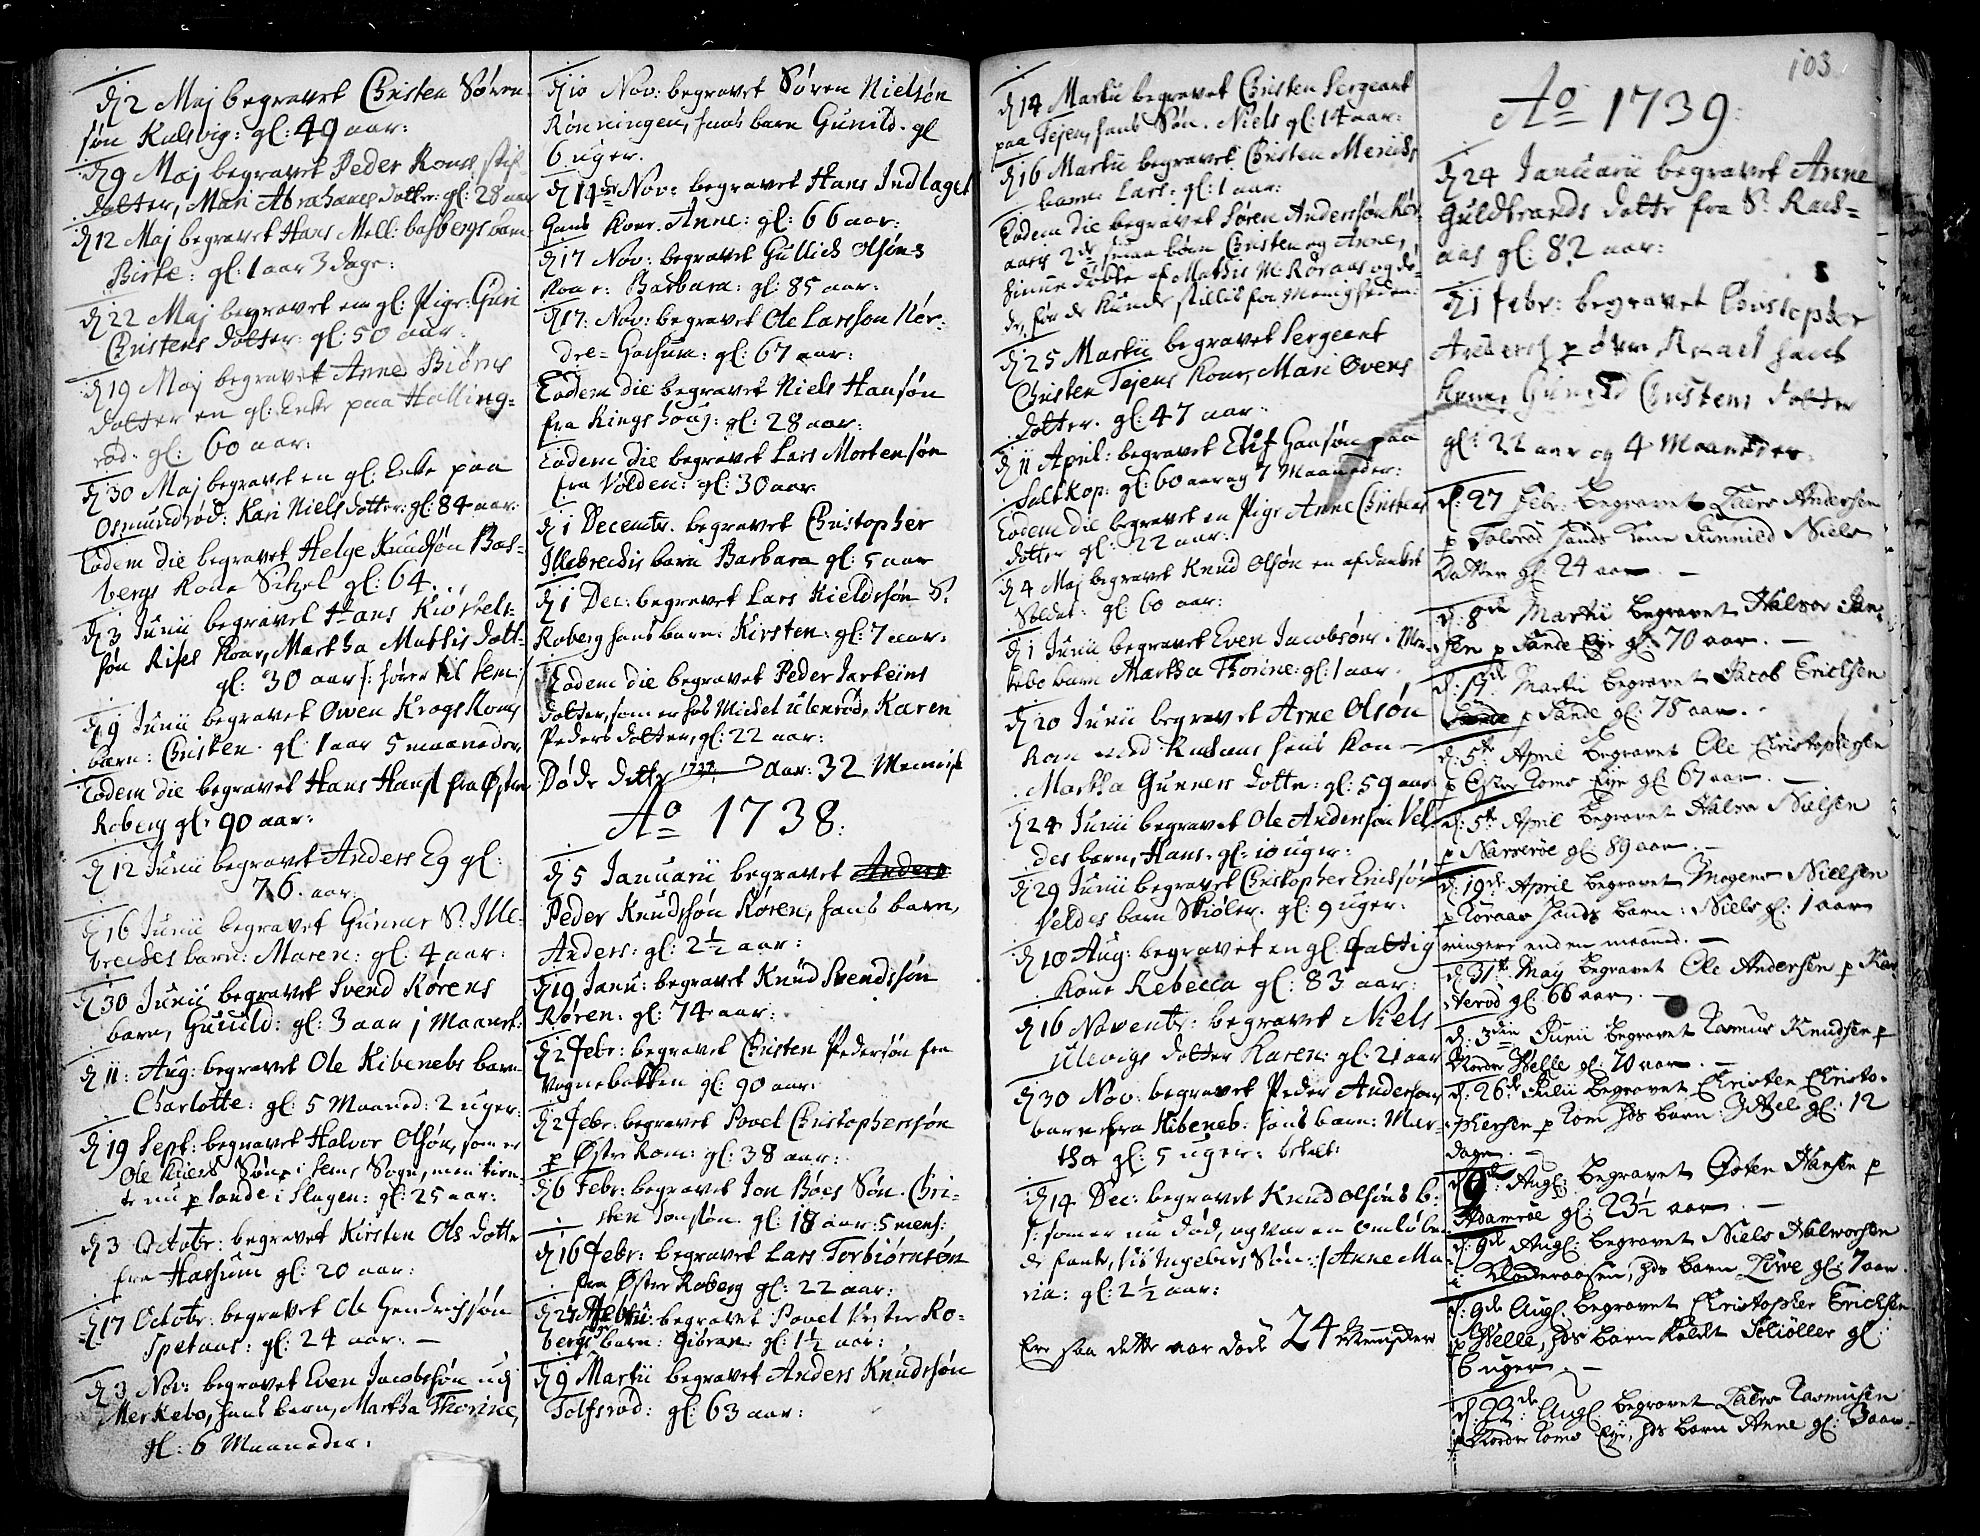 d 2 Maj begravet Christen Sören-
søn Kalsvig: gl: 49 aar:
d 9 Maj begravet Peder Roms stif-
dotter, Mari Abrahams dotter: gl: 28 aar
d 12 Maj begravet Hans Mell: basbergs barn
Birte: gl: 1 aar 3 dage:
d 22 Maj begravet en gl: Pige: Guri
Christens dotter: gl: 50 aar:
d 19 Maj begravet Anne Biørns
dotter en gl: Enke paa Halling-
rød: gl: 60 aar:
d 30 Maj begravet en gl: Enke paa
Osmundrød: Kari Niels dotter: gl: 84 aar:
Eodem die begravet Helge Knudsøn Bas-
bergs Kone Sitzel gl: 64.
d 3 Junii begravet Hans Kiøstels-
søn Rises Kone, Martha Mattis dott-
gl: 30 aar /: hører til Sem /
d 9 Junii begravet Owen Krogs Koms
barn: Christen. gl: 1 aar 5 maaneder
Eodem die begravet Hans Hansl fra Øster
Roberg gl: 90 aar:
d 12 Junii begravet Anders Eg gl:
76. aar:
d 16 Junii begravet Gunner S. Ille-
breches barn: Maren: gl: 4 aar:
d 30 Junii begravet Svend Rørens
barn, Gunild: gl: 3 aar j Maanet:
d 11: Aug: begravet Ole Kibenebs barn
Charlotte: gl: 5 Maaned: 2 uger:
d 19 Sept: begravet Halvor Olsøn, som er
Ole Søn i Sems Sogn, men tien-
te nu p Sande i Slagen: gl: 25 aar:
d 3 Octobr: begravet Kirsten Ols dotte
fra Hassum gl: 20 aar:
d 17 Octobr: begravet Ole Hendrichsøn
Spetaas: gl: 24 aar: —
d 3 Nov: begravet Even Jacobsøn udj
Merkebo, hans barn, Martha Thorine,
gl: 6 Maaneder.
d 10 Nov: begravet Søren Nielsøn
Rønningen, hans barn Gunild. gl
6 uger.
d 14de Nov: begravet Hans Indlaget
hans Kone Anne: gl: 66 aar:
d 17 Nov: begravet Gullich Olsøns
Kone: Barbara: gl: 85 aar:
d 17: Nov: begravet Ole Larsson Nor-
dre-Hassum: gl: 67 aar:
Eodem die begravet Niels Hansøn
fra Ringshoug: gl: 28 aar:
Eodem die begravet Lars Mortensøn
fra Volden: gl: 30 aar
d 1 Decembr. begravet Christopher
Illebrechis barn Barbara gl: 5 aar
d 1 Dec: begravet Lars Kieldssøn S.
Roberg hans barn: Kirsten: gl: 7 aar:
Eodem die begravet Peder Jarteins
dotter, som er hos Michel Ulenrød, Karen
Peders dotter, gl: 22 aar:
Døde dette 1737. Aar: 32 Mennisk
Ao 1738:
d 5 Januarii begravet Anders
Peder Knudsøn Røren, hans barn,
Anders: gl: 2½ aar:
d 19 Janu: begravet Knud Svendssøn
Røren: gl: 74 aar:
d 2 Febr: begravet Christen Pedersøn fra
Vognebakken gl: 90 aar:
d 2 Febr: begravet Povel Christophersøn
p Østre Rom: gl: 38 aar:
d 6 Febr: begravet Jon Bøes Søn. Chri-
sten Jonsøn. gl: 18 aar: 5 mens:
d 16 Febr: begravet Lars Torbiørnsøn
fra Østre Roberg gl: 22 aar:
d begravet Povel Vester Ro-
bergs barn: Gioran: gl: 1½ aar:
d 9 Martii begravet Anders Knudsøn
Tolfsrød: gl: 63 aar:
d 14 Martii begravet Christen Sergeant
paa Tejen, hans Søn. Niels gl: 14 aar:
d 16 Martii begravet Christen
barn: Lars: gl: 1 aar:
Eodem die begravet Søren Anderssøn Kør-
aas 2de smaa børn Christen og Anne,
hiemedøbte af Mathis M: Køraas og dø-
de, før de kunde stillis for Menigheden:
d 25 Martii begravet Sergeant
Christen Tejens Kone, Mari Ovens
dotter. gl: 47 aar:
d 11 April: begravet Elif Hansøn paa
Saltkop: gl: 60 aar og 7 Maaneder:
Eodem die begravet en Pige Anne Christens
dotter gl: 22 aar:
d 4 Maj begravet Knud Olsøn en afdanket
Soldat: gl: 60 aar:
d 1 Junii begravet Even Jacobsøns i Mer-
kebo barn Martha Thorine: gl: 1 aar
d 20 Junii begravet Arne Olsøn
hans Kone
Martha Gunners dotter: gl: 59 aar
d 24 Junii begravet Ole Anderssøn Vel-
des barn, Hans. gl: 10 uger:
d 29 Junii begravet Christopher Erichsøn
Veldes barn Skiøler. gl: 9 uger:
d 10 Aug: begravet en gl: fattig
Kone Rebecca gl: 83 aar:
d 16 Novembr: begravet Niels
Ulevigs dotter Karen: gl: 21 aar
d 30 Nov: begravet Peder Andersøns
barn fra Kibeneb: hans barn: Mar-
tha gl: 5 uger: betalt:
d 14 Dec: begravet Knud Olsøns b:
/: som er nu død, og var en omløben-
de fante, Sis Ingebors Søn :/ Anne Ma-
ria: gl: 2½ aar:
Ere saa dette aar døde 24 Mennisker
103
Ao 1739:
d 24 Januarii begravet Anne
Guldbrands dotte fra S. Ræd-
aas gl: 82 aar:
d 1 Febr: begravet Christopher
Anders p øvre hans
Kone, Gunild Christens dotter
gl: 22 aar og 4 Maaneder.
d: 27 Febr: begravet Laers Andersen
p Tolsrød hands Kone Gunnild Niels
Datter gl: 24 aar. —
d: 8de Martii begravet Halvor Han-
sen p Sande Eye gl: 70 aar. —
d: 13de Martii begravet Jacob Erichsen
Sande p Sande gl: 78 aar. —
d: 5te April begravet Ole Christophersen
p Øster Roms Eye gl: 67 aar. —
d: 5te April begravet Halvor Nielsen
p Narverøe gl: 89 aar. —
d: 19de April begravet Mogens Nielsen
p Køraas hands barn: Niels gl: 1 aar
ringere end en maaned. —
d: 31te May begravet Ole Andersen p
gl: 66 aar. —
d: 3die Junii begravet Rasmus Knudsen p
Norder Welle gl: 70 aar. —
d: 26de Julii begravet Christen Christo-
phersen p Rom hds barn: gl: 12
dage. —
d 9de: Augl: begravet Østen Hansen p
Adamrøe gl: 23½ aar. —
d: 9de Augl: begravet Niels Halworsen
i Kloderaasen, hds barn Live gl: 7 aar.
d: 9de Augl: begravet Christopher Erichsen
p Welle, hds barn kaldt Schiøller gl:
6 uger. —
d: 23de: Augl begravet Laers Rasmusen
p Norder Roms Eye, hds barn Anne gl: 3 aar